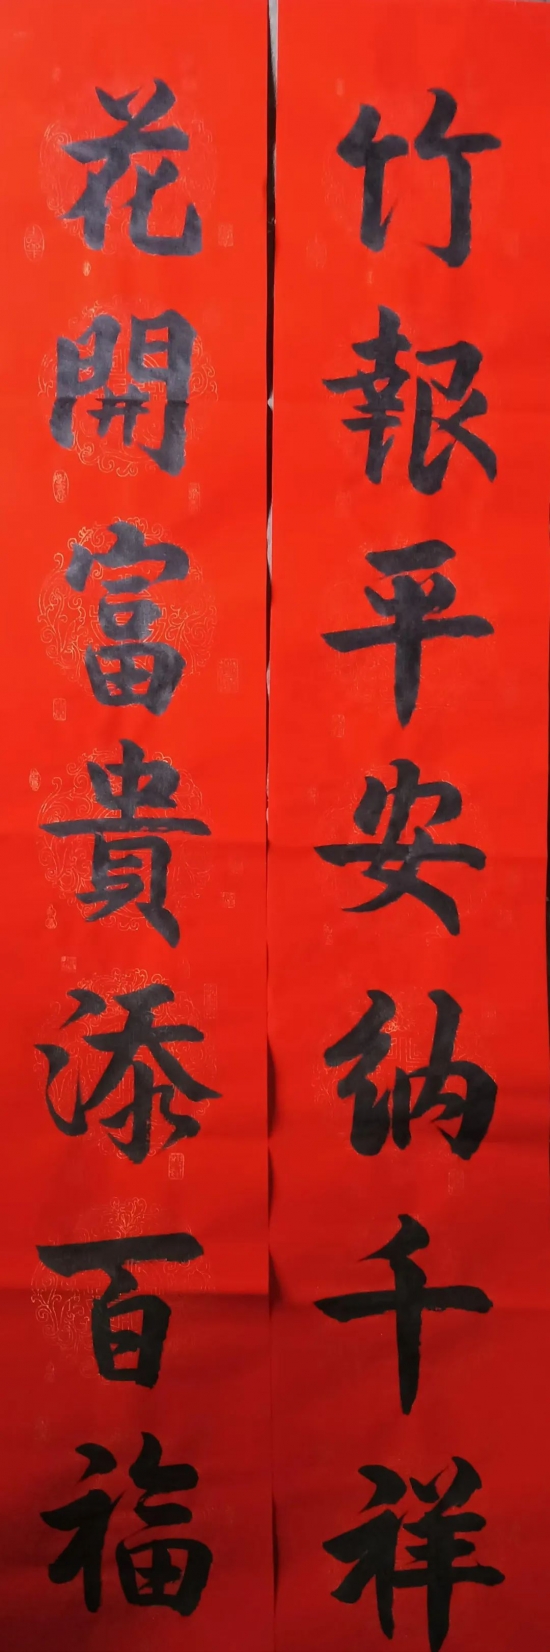 竹報平安納千祥
花開富貴添百福